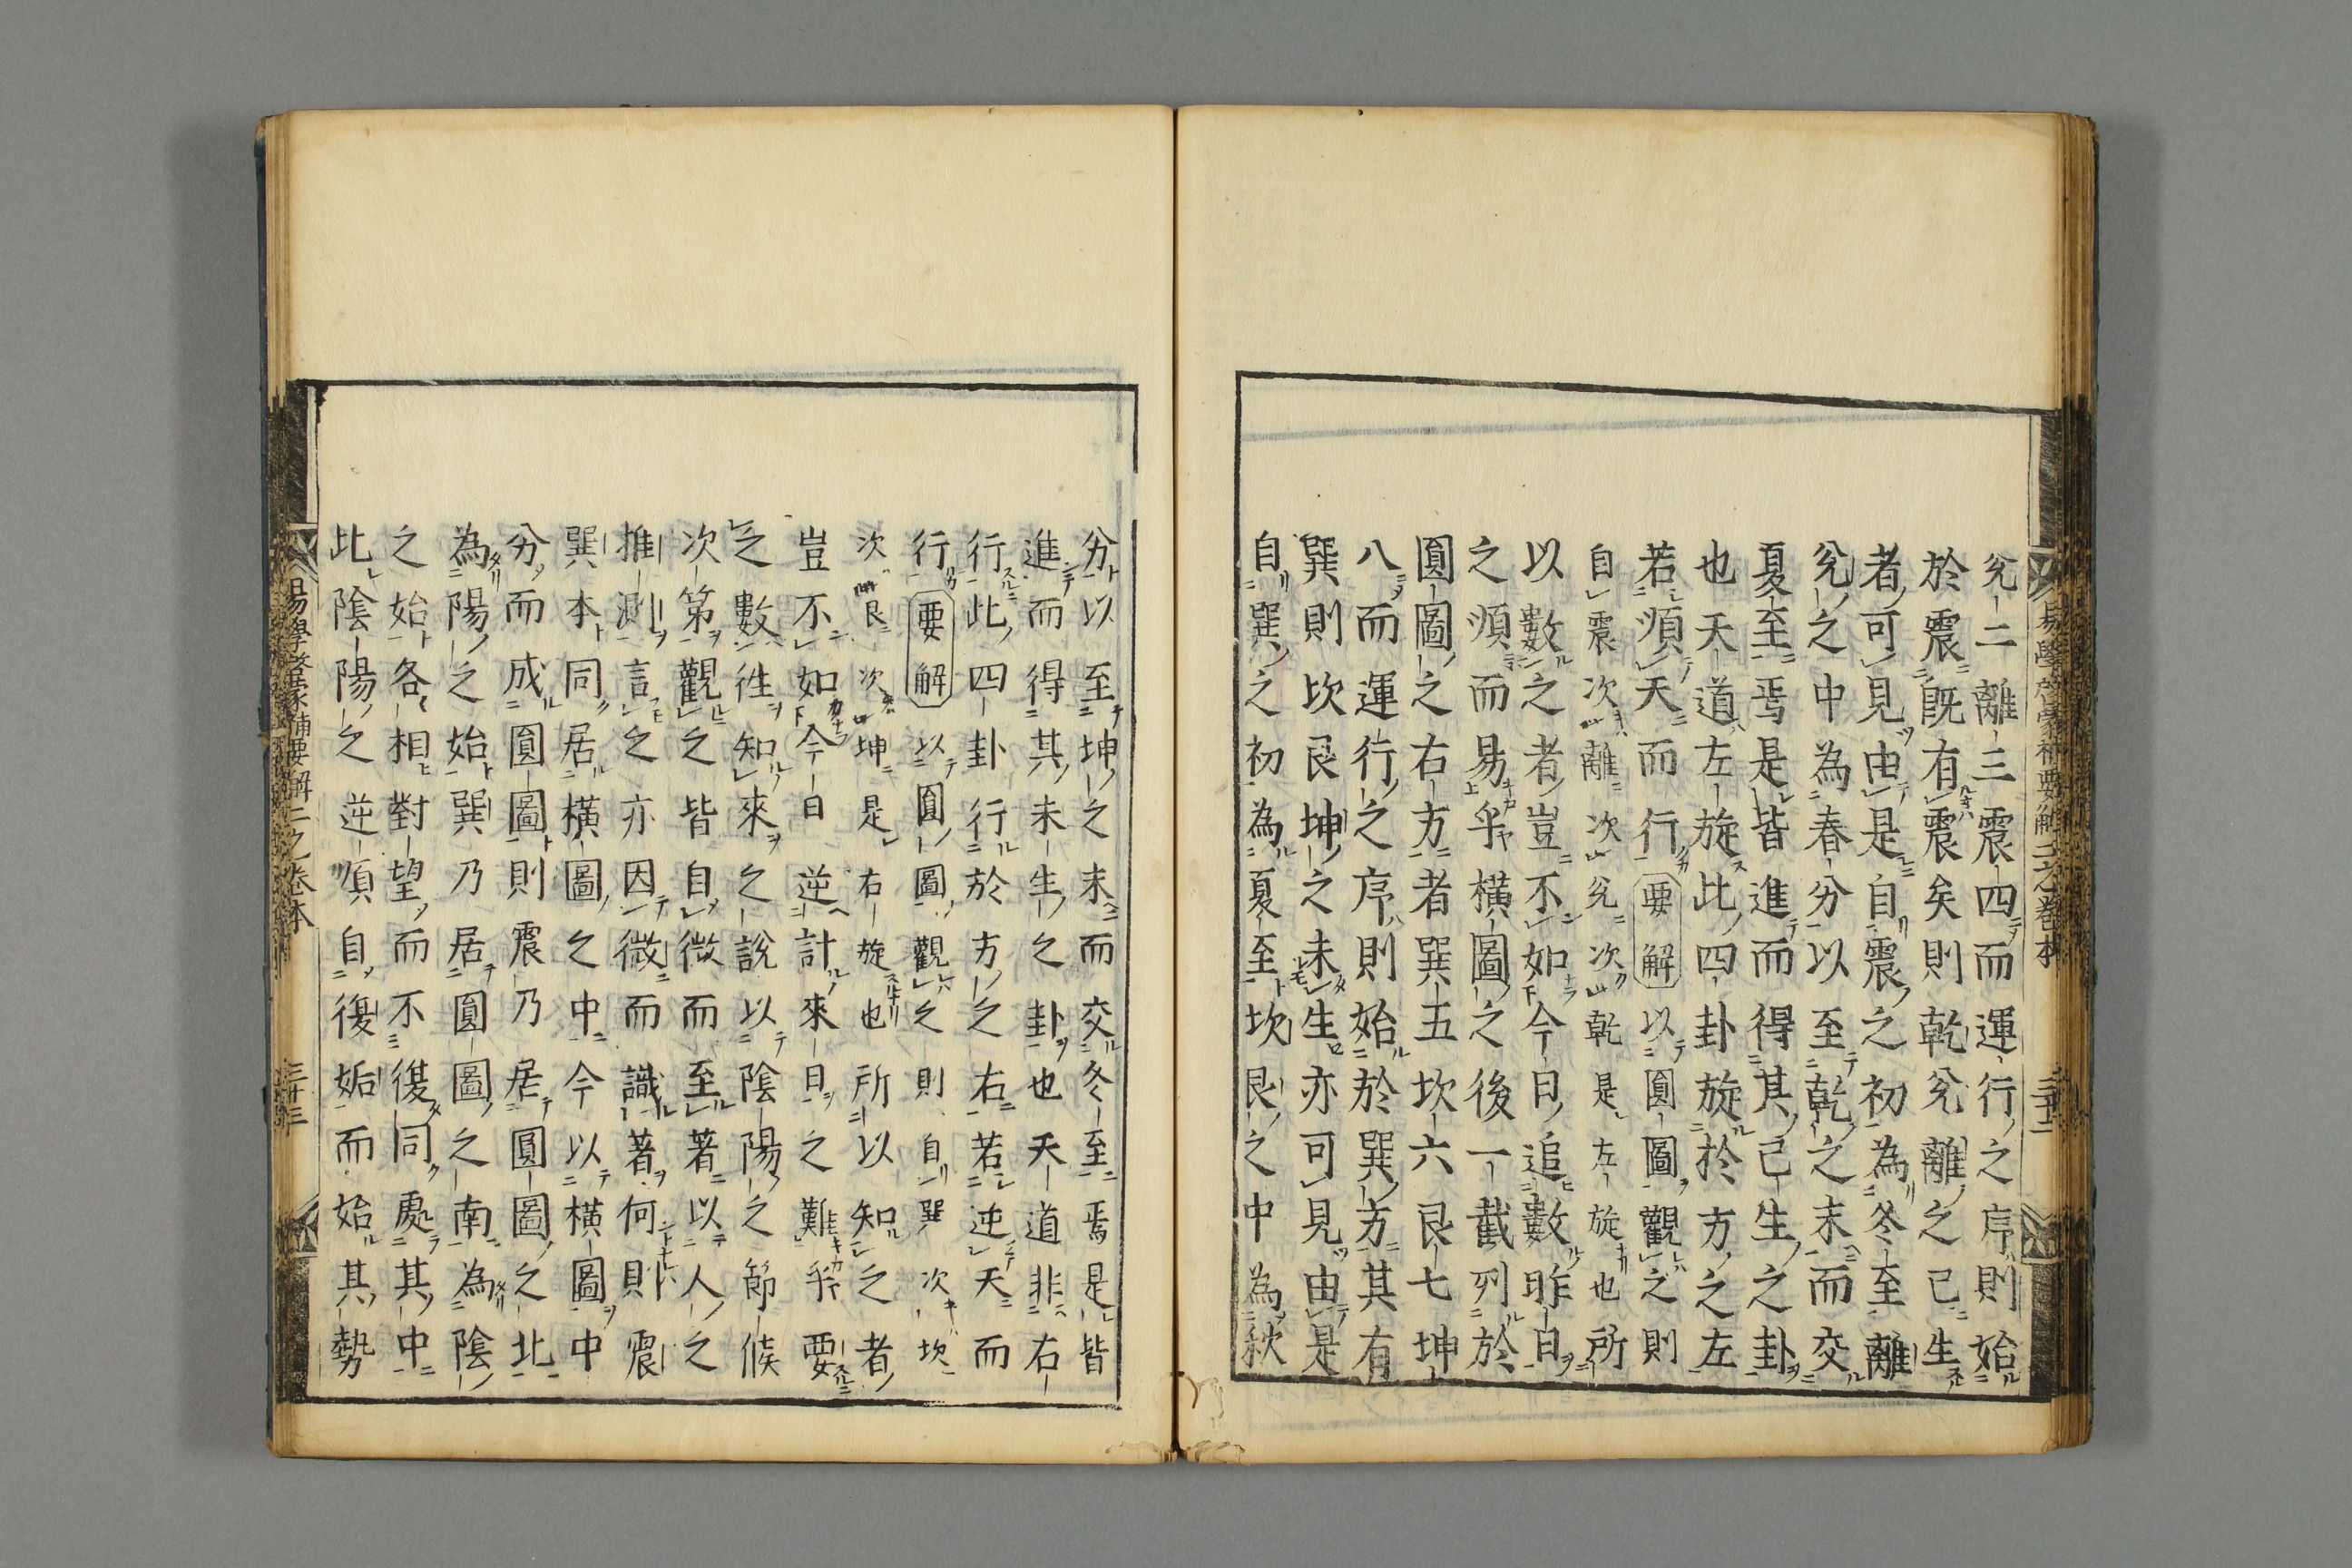 兊二離三震四而運行之序則始
於震既有震矣則乾兊離之已生
者可見由是自震之初為冬至離
兊之中為春分以至乾之末而交
夏至焉是皆進而得其已生之卦
也天道左旋此四卦旋於方之左
若順天而行 要解 以圓圖觀之則
自震次離次兊次乾是左旋也所
以數之者豈不如今日追數昨日
之順而易乎橫圖之後一截列於
圓圖之右方者巽五坎六艮七坤
八而運行之序則始於巽方其有
巽則坎艮坤之未生亦可見由是
自巽之初為夏至坎艮之中為秋
易學啓蒙補要解二之卷本 三十二
分以至坤之末而交冬至焉是皆
進而得其未生之卦也天道非右
行此四卦行於方之右若逆天而
行 要解 以圓圖觀之則自巽次坎
次艮次坤是右旋也所以知之者
豈不如今日逆計來日之難乎要
之數徃知來之說以陰陽之節候
次第觀之皆自微而至著以人之
推測言之亦因微而識著何則震
巽本同居橫圖之中今以橫圖中
分而成圓圖則震乃居圓圖之北
為陽之始巽乃居圓圖之南為陰
之始各相對望而不復同處其中
此陰陽之逆順自復姤而始其勢
易學啓蒙補要解二之卷本 三十三